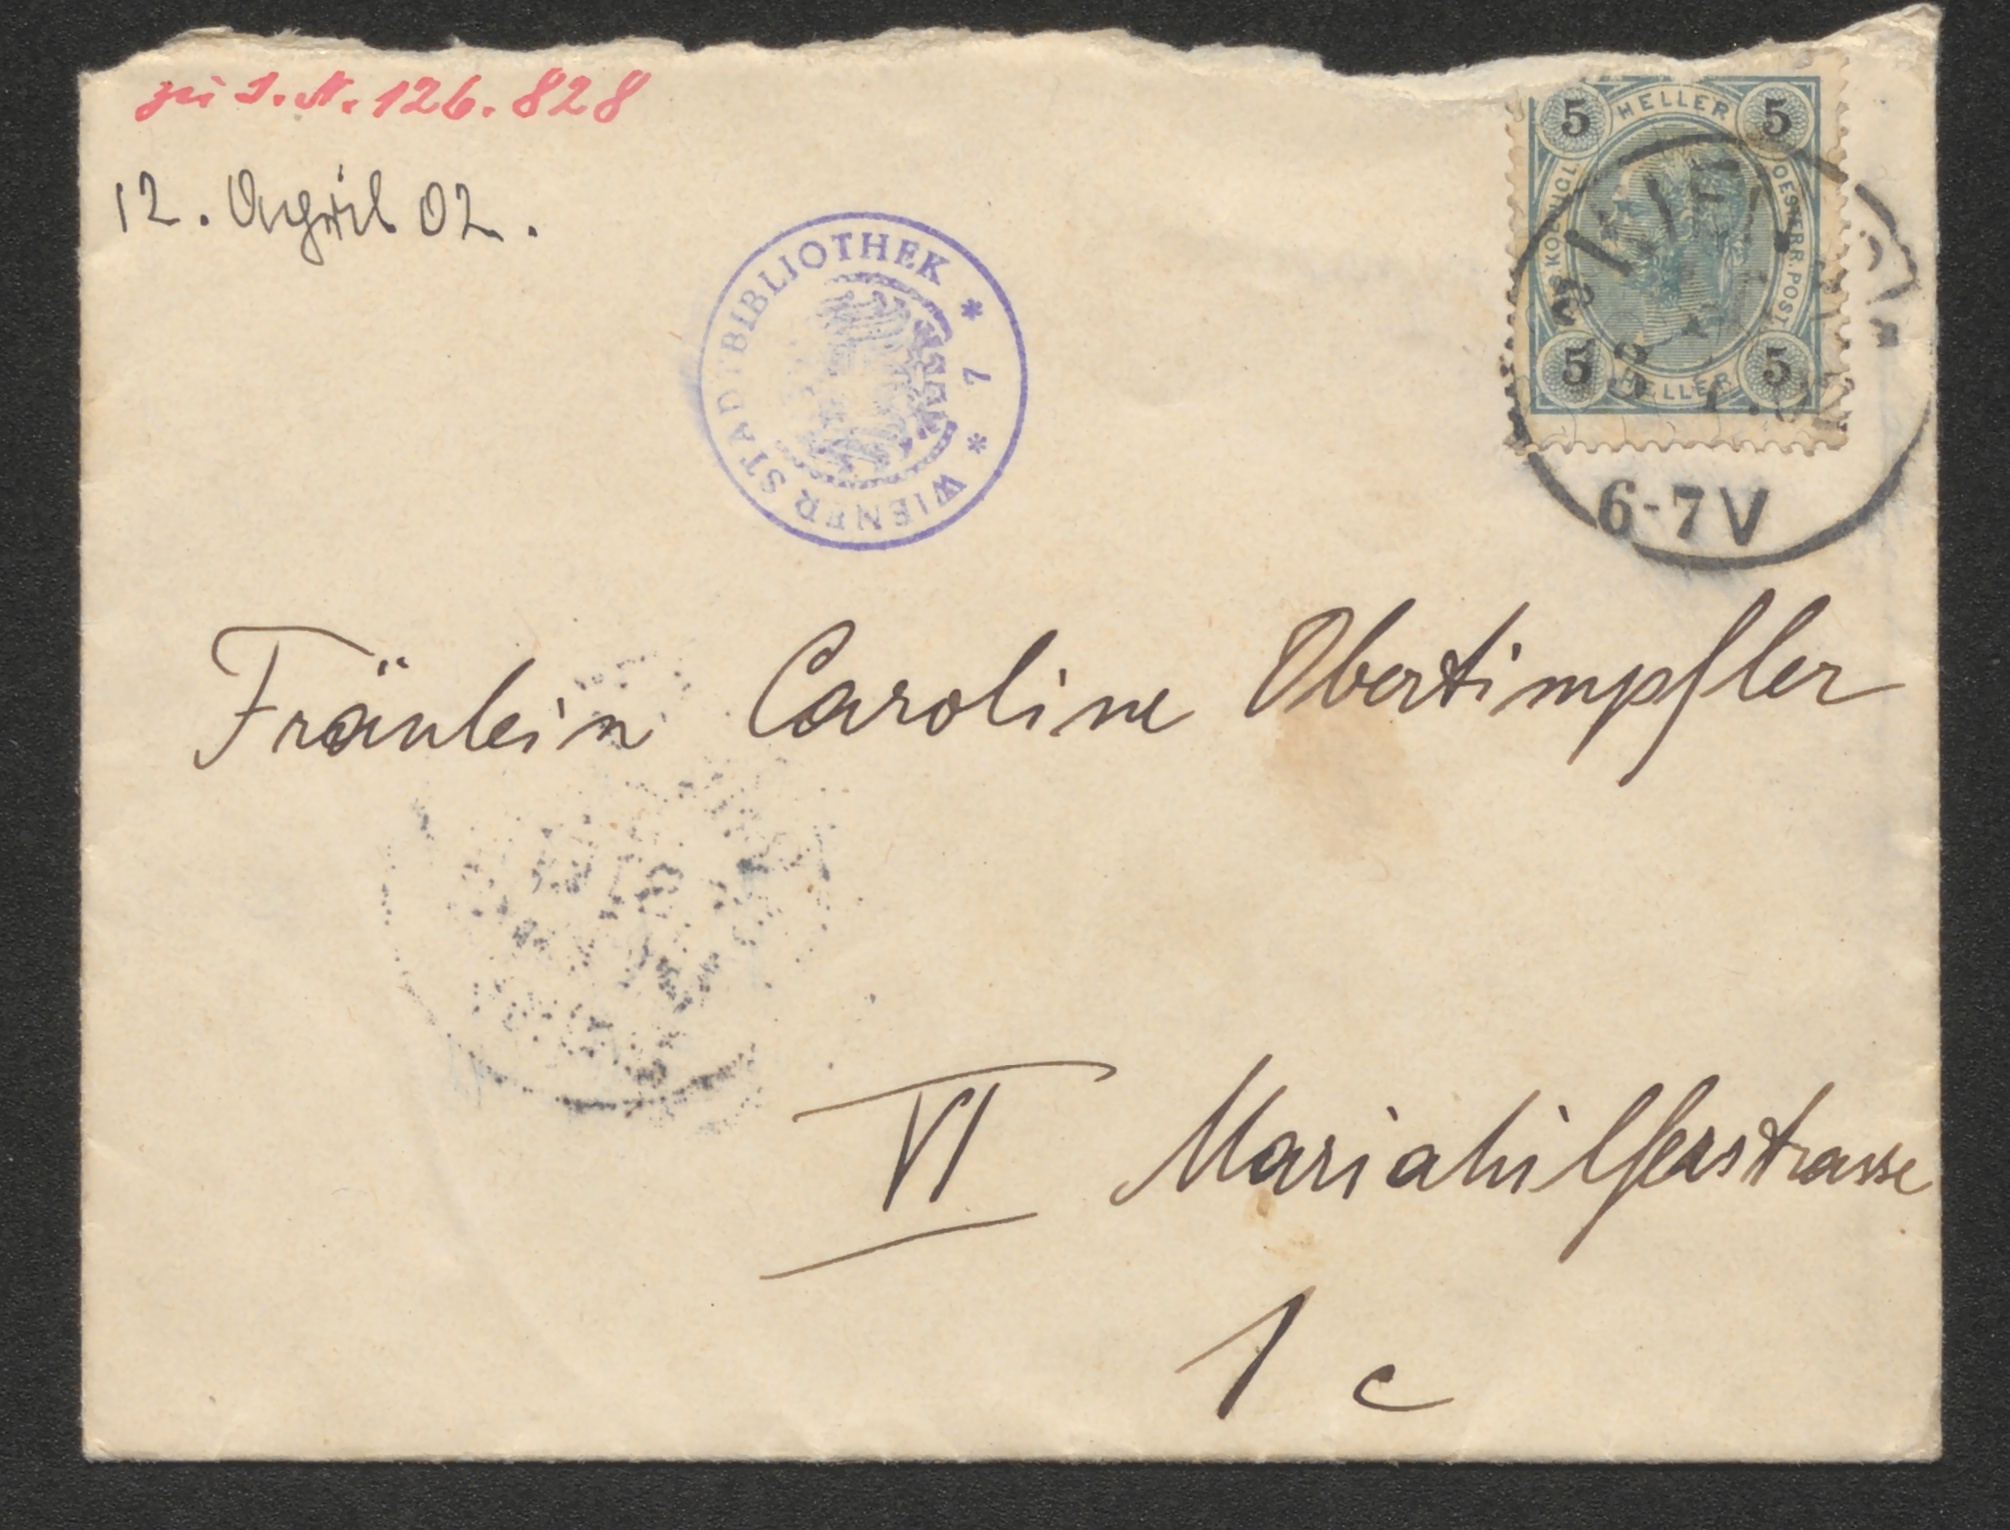 zu I. N. 126.828
12. April 02.
HELLER
5 5
KÖNIGL.
OESTERR. POST
5 5
HELLER
WIEN
6-7 V
WIENER STADTBIBLIOTHEK * 7 *
Fräulein Caroline Obertimpfler
VI Mariahilferstrasse
1c